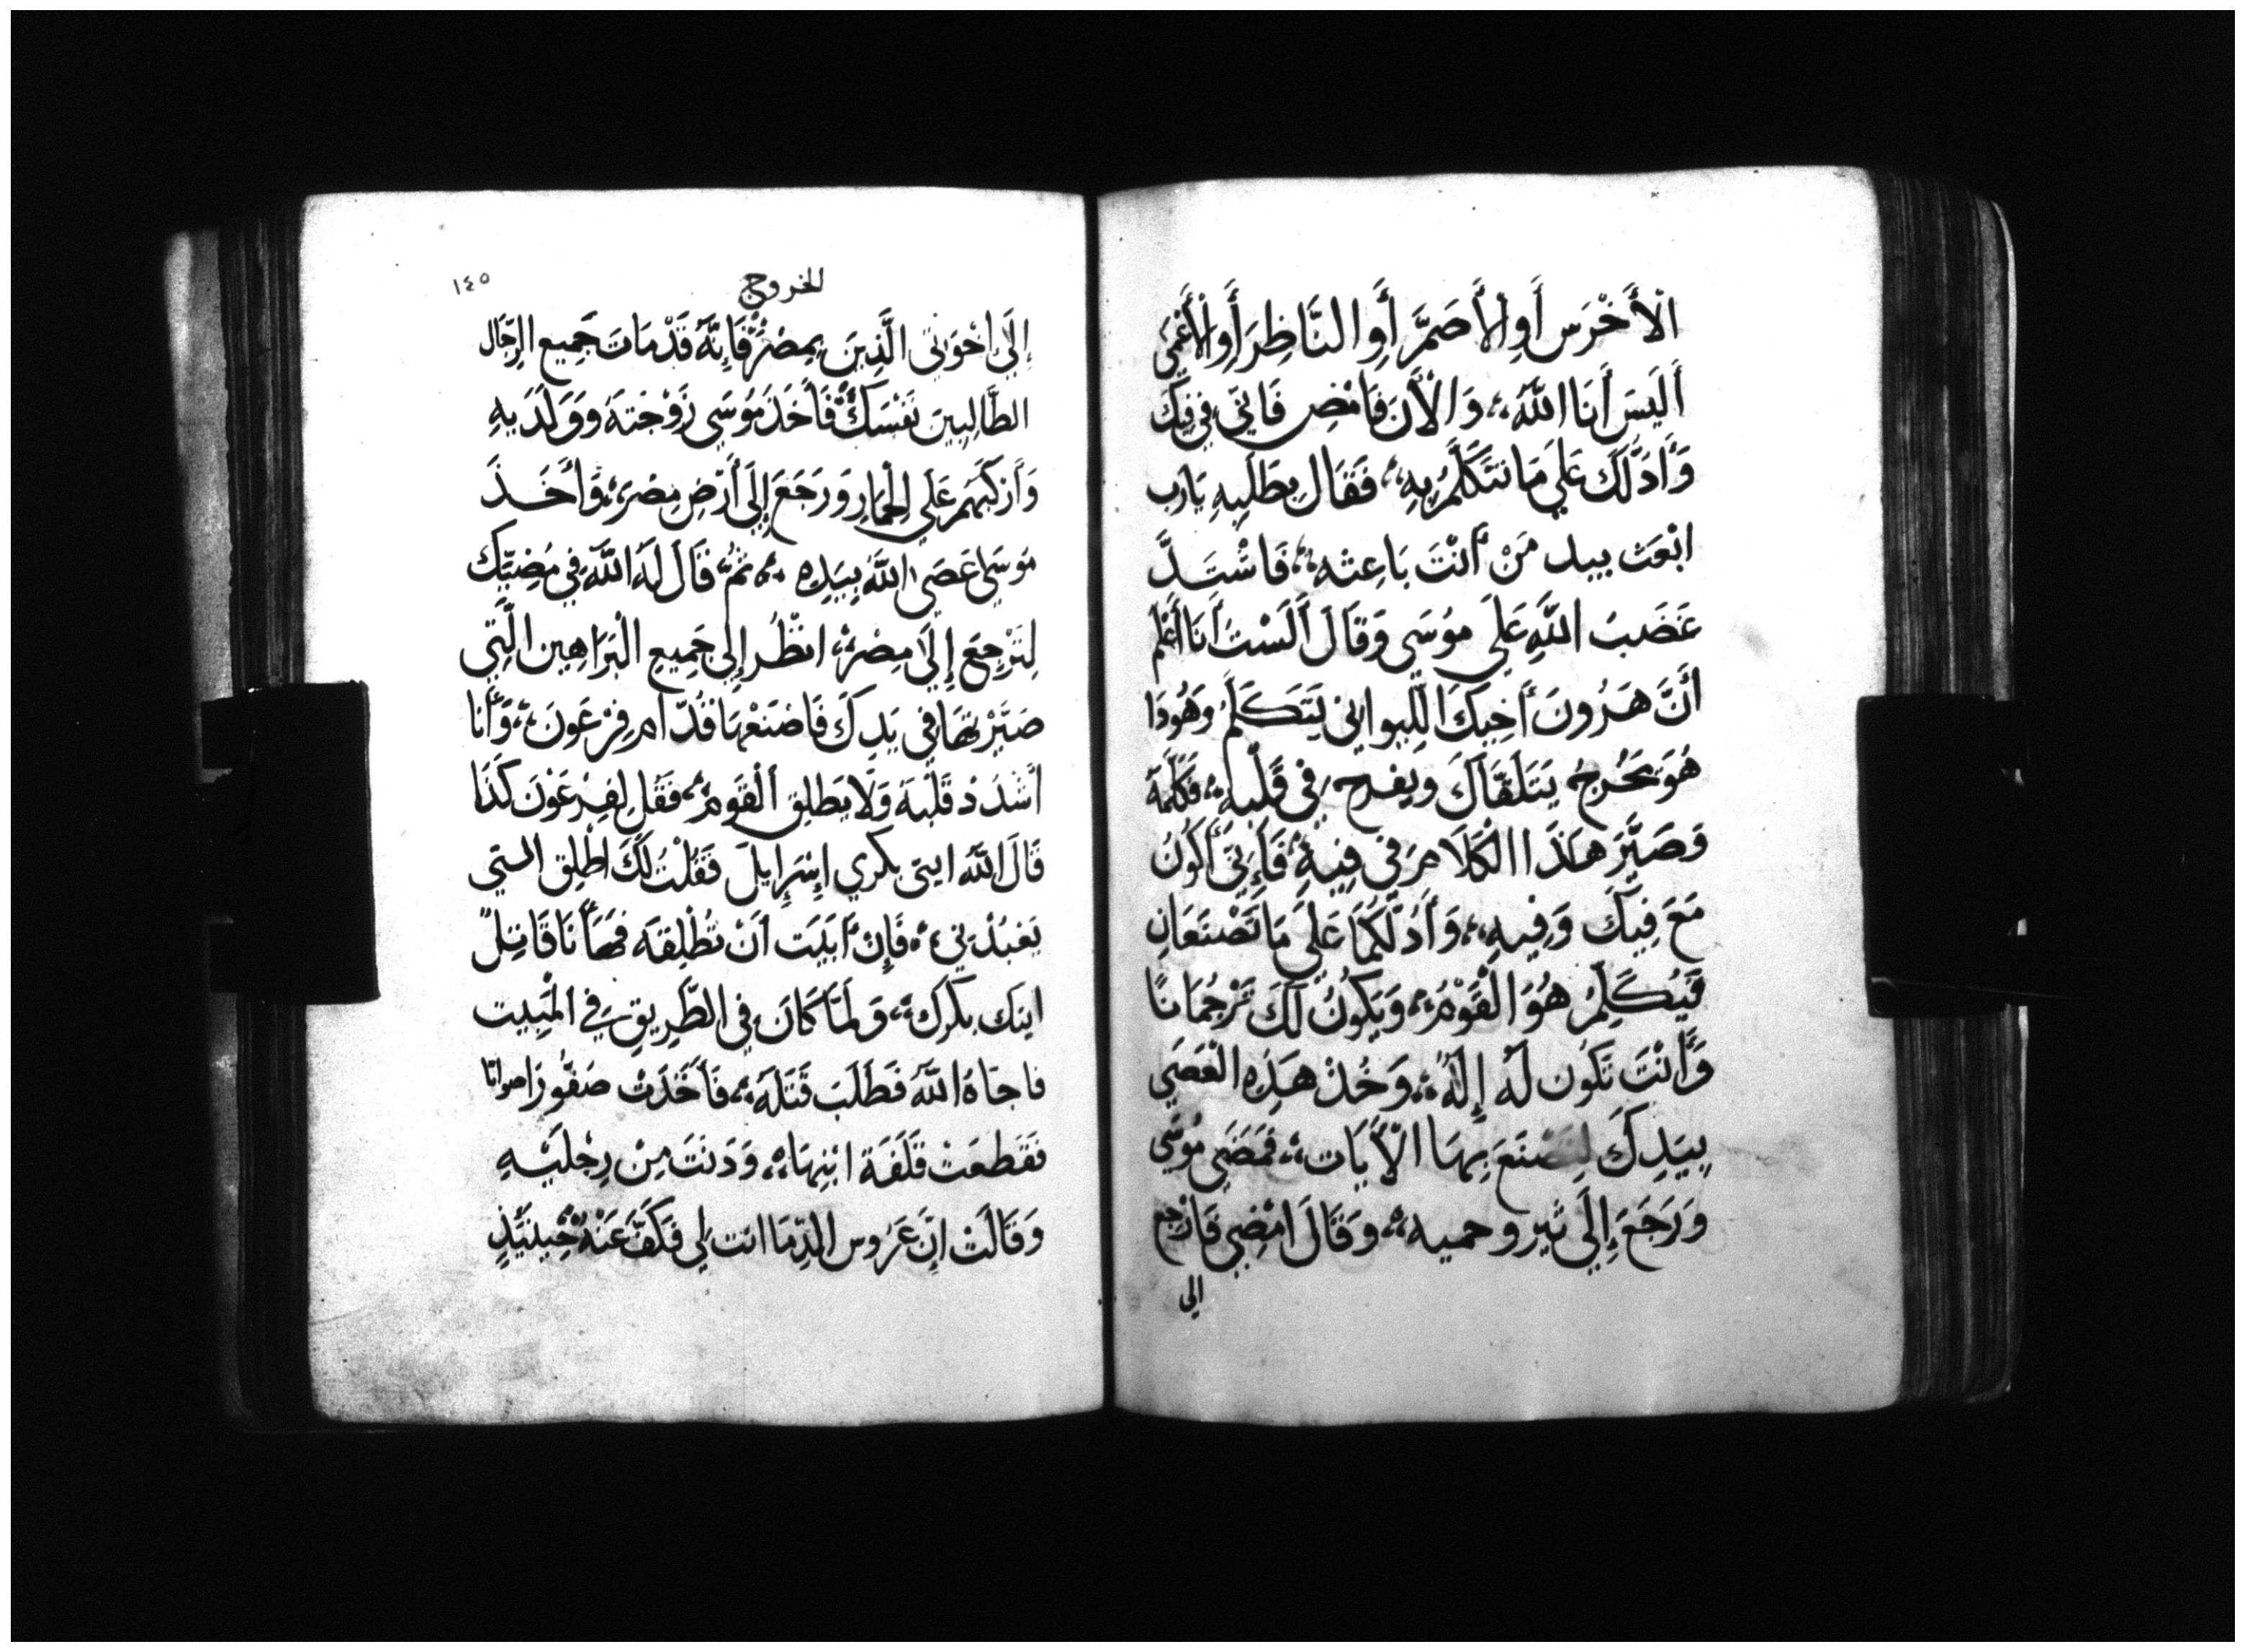 الْأَخْرَس أَوِ الأَصَمَّ أَوِ النَّاظِرَ أَوِ الأَعْمَي
أَلَيسَ أَنَا اللَّهَ، وَالْأَنَ فَامْضِ فَانِيّ فِي فِيكَ
وَأَدَلَّكَ عَلَي مَا تتَكَلَّمُ بِهِ، فَقَالَ بِطَلَبِهِ يَارب
ابْعَث بيد مَنْ أَنْتَ بَاعِثه، فَاشْتَدَّ
غَضَبُ اللَّهِ عَلَي مُوسَي وَقَالَ أَلَسْتَ أَنَا أَعْلم
أَنَّ هَرُونَ أَخِيكَ اللِّيواني يَتَكَلَّمُ وَهُوذَا
هُوَ يَخْرجُ يَتَلَقَّاكَ ويفرح في قَلْبِهِ، فَكَلِّمَهُ
وَصَيِّرْ هَذَا الْكَلَامَ فِي فِيهِ، فَإِنِيّ أَكُونُ
مَعَ فِيكَ وَفِيهِ، وَأَدُلُّكُمَا عَلَي مَا تَصْنَعَانِ
فَيُكَلِّمُ هُوَ الْقَوْمُ، وَيَكُونُ لَكَ تَرْجُمَانًا
وَأَنْتَ تَكُون لَهُ إِلَهٌ، وَخُذْ هَذِهِ الْعَصَي
بِيَدِكَ لِتَصْنَعَ بِهَا الْأَيَات، فَمَضَي مُوسَي
وَرَجَعَ إِلَي ثيرو حميه، وَقَالَ امْضِي فَارْجع
الي
الخروج
١٤٥
إِلَي اخْوَتِي الَّذِينَ بِمِصْرَ، فَإِنَّهُ قَدْ مَاتَ جَمِيع الرِّجَال
الطَّالِبِينَ نَفْسَكَ، فَأَخَذَ مُوسَي زَوْجَتَهُ وَوَلَدَيهِ
وَأَرْكَبَهُمْ عَلَي الْحمَارِ وَرَجَعَ إِلَي أَرْضِ مِصْرَ، وَأَخَذَ
مُوسَي عَصَي اللَّهِ بِيَدِهِ، ثُمَّ قَالَ لَهُ اللَّهُ فِي مُضِيِّكَ
لِتَرْجِعَ إِلَي مِصْرَ، انْظُر إِلَي جَمِيع الْبَرَاهِين الَّتِي
صَيَّرْتهَا فِي يَدِكَ فَاصْنَعْهَا قُدَّام فِرْعَونَ، وَأَنَا
أَشْدَدْ قَلْبَهُ وَلَا يطَلِق الْقَومَ، فَقُل لِفِرْعَوْنَ كَذَا
قَالَ اللَّه ابني بكري إِسْرَايلَ فَقُلْت لَكَ اطْلِق ابني
يَعْبُدْنِي، فَإِنْ أَبَيْتَ أَنْ تُطْلِقَهُ فَهَأَنَا قَاتِلٌ
ابنَك بكْرَك، وَلَمَّا كَانَ فِي الطَّرِيقِ فِي الْمَبِيت
فاجَاهُ اللَّه فَطَلَبَ قَتْلَهُ، فَأَخَذَتْ صَفُّورَا صوانا
فَقَطَعَتْ قَلَفَةَ ابْنِهَا، وَدَنَتَ مِنْ رِجْلَيْهِ
وَقَالَتْ إِنَّ عَرُوس الدِّمَا انت لي فَكَفَّ عَنْهُ حِينَئِذٍ